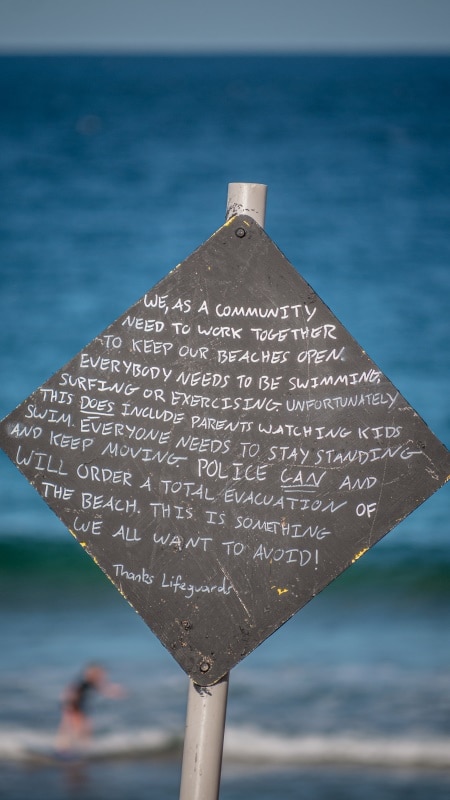 WE, AS A COMMUNITY
NEED TO WORK TOGETHER
TO KEEP OUR BEACHES OPEN.
EVERYBODY NEEDS TO BE SWIMMING,
SURFING OR EXERCISING. UNFORTUNATELY
THIS DOES INCLUDE PARENTS WATCHING KIDS
SWIM. EVERYONE NEEDS TO STAY STANDING
AND KEEP MOVING. POLICE CAN AND
WILL ORDER A TOTAL EVACUATION OF
THE BEACH. THIS IS SOMETHING
WE ALL WANT TO AVOID!
Thanks Lifeguards